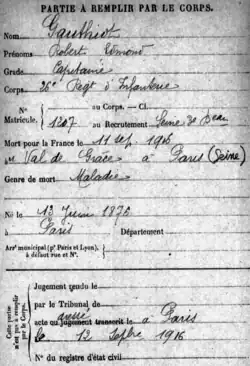 PARTIE À REMPLIR PAR LE CORPS.
Nom Gauthiot
Prénoms Robert Edmond
Grade Capitaine
Corps 26e Regt d'Infanterie
N° Matricule.
au Corps. — Cl.
1207 au Recrutement Seine
Mort pour la France le 11 sep. 1916
Val de Grâce à Paris (Seine)
Genre de mort Maladie
Né le 13 Juin 1876
à Paris Département
Arrt municipal (pr Paris et Lyon),
à défaut rue et N°.
Cette partie n'est pas à remplir par le Corps.
Jugement rendu le
par le Tribunal de
acte ou jugement transcrit le à Paris
le 12 Septbre 1916
N° du registre d'état civil